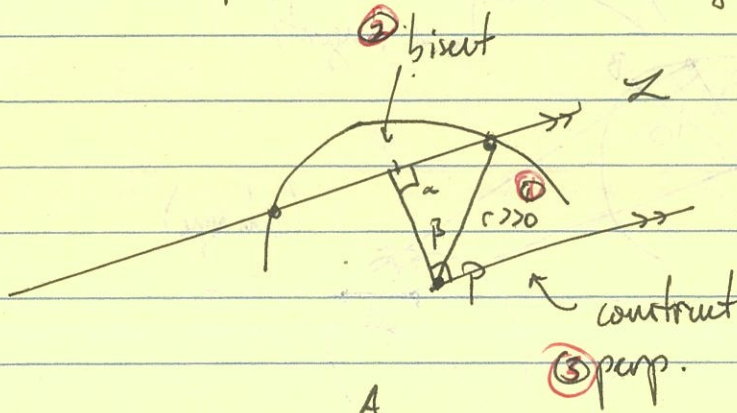 ② bisect
L
α
①
β
r>>0
P
construct
③ perp.
A